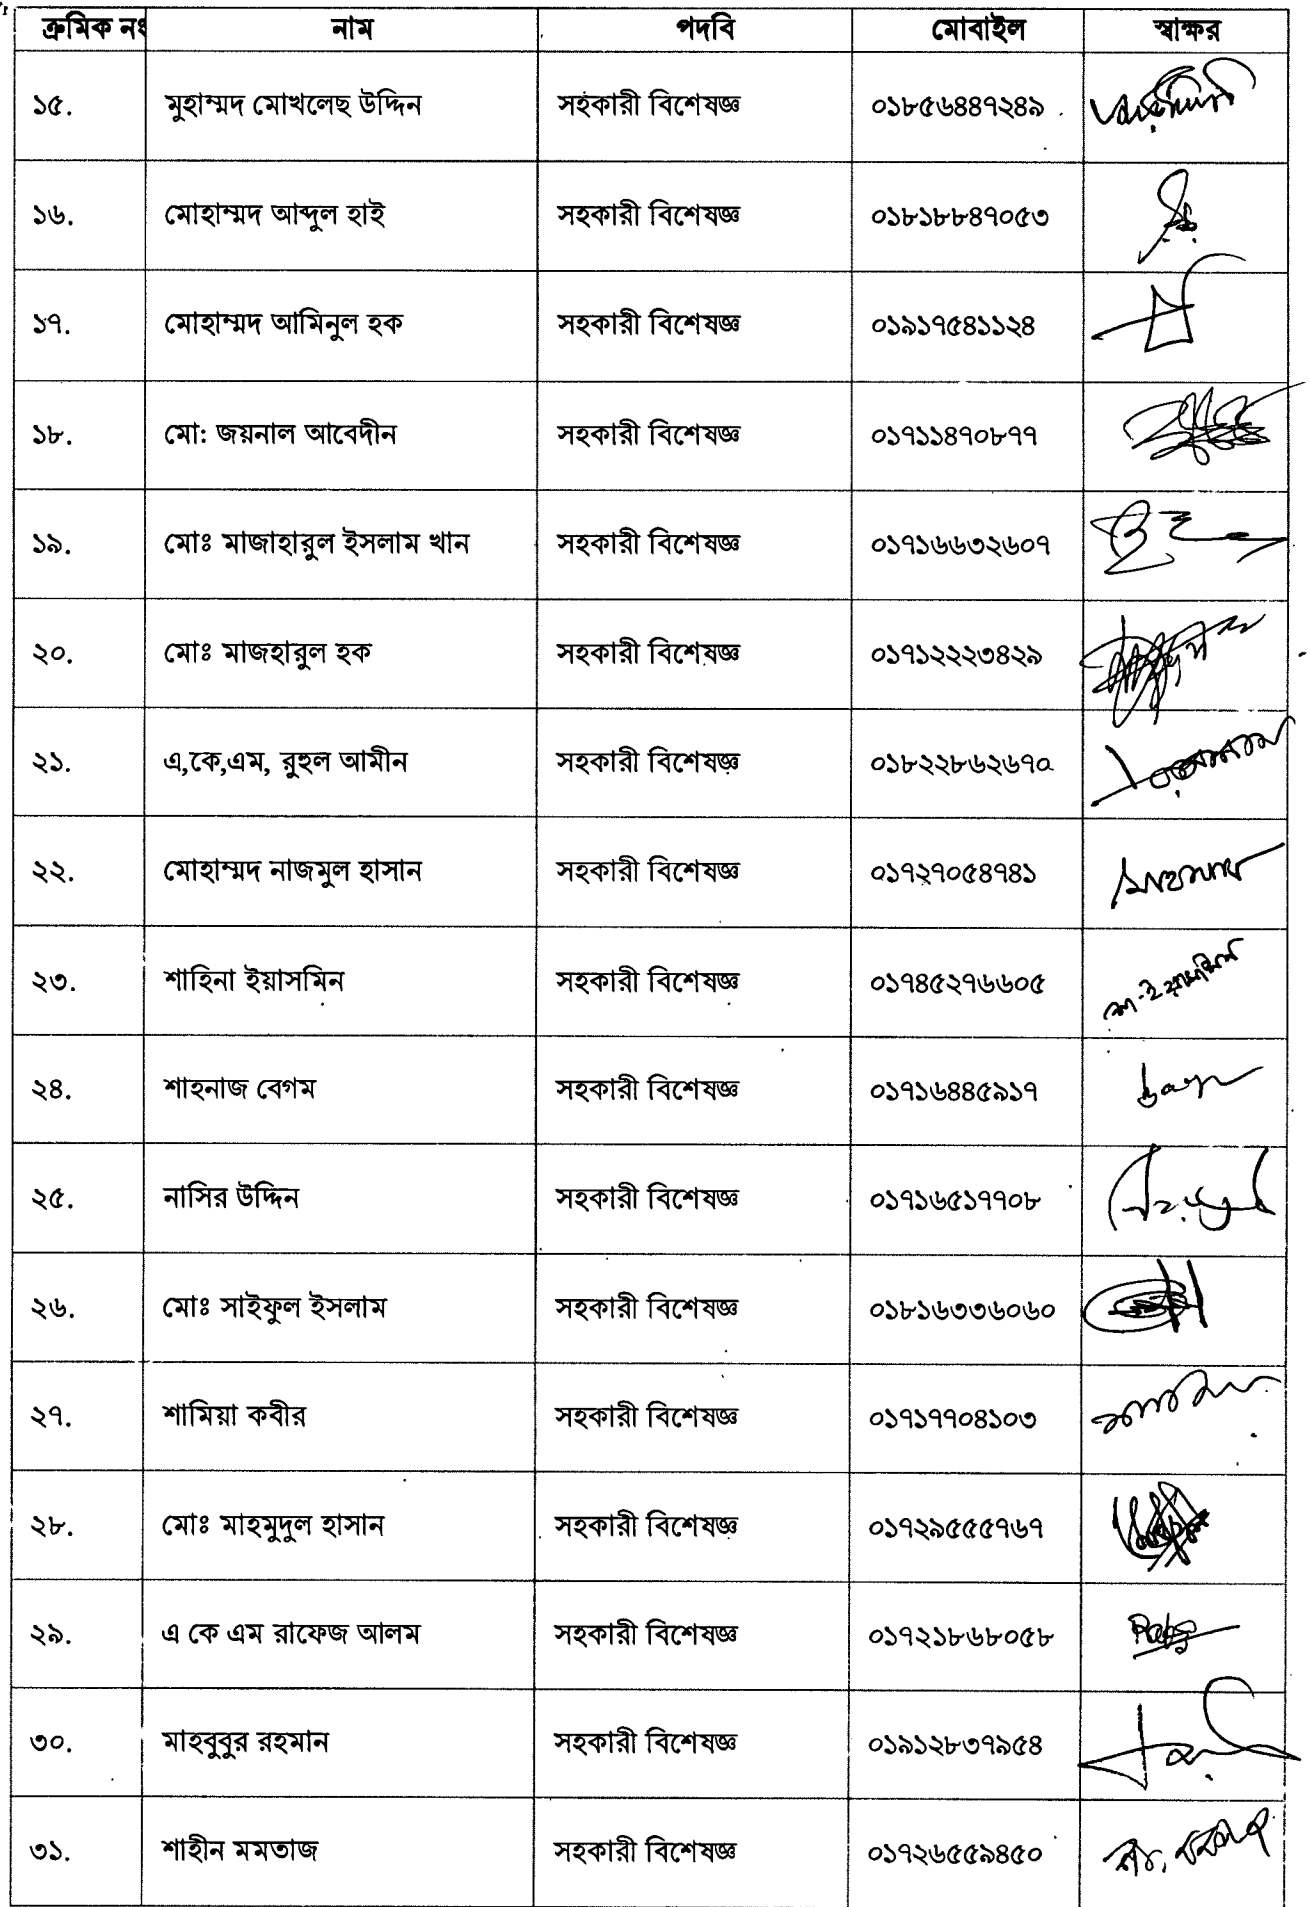 ক্রমিক নং নাম পদবি মোবাইল স্বাক্ষর
১৫. মুহাম্মদ মোখলেছ উদ্দিন সহকারী বিশেষজ্ঞ ০১৮৫৬৪৪৭২৪৯
১৬. মোহাম্মদ আব্দুল হাই সহকারী বিশেষজ্ঞ ০১৮১৮৮৪৭০৫৩
১৭. মোহাম্মদ আমিনুল হক সহকারী বিশেষজ্ঞ ০১৯১৭৫৪১১২৪
১৮. মো: জয়নাল আবেদীন সহকারী বিশেষজ্ঞ ০১৭১১৪৭০৮৭৭
১৯. মোঃ মাজাহারুল ইসলাম খান সহকারী বিশেষজ্ঞ ০১৭১৬৬৩২৬০৭
২০. মোঃ মাজহারুল হক সহকারী বিশেষজ্ঞ ০১৭১২২২৩৪২৯
২১. এ,কে,এম, রুহুল আমীন সহকারী বিশেষজ্ঞ ০১৮২২৮৬২৬৭০
২২. মোহাম্মদ নাজমুল হাসান সহকারী বিশেষজ্ঞ ০১৭২৭০৫৪৭৪১
২৩. শাহিনা ইয়াসমিন সহকারী বিশেষজ্ঞ ০১৭৪৫২৭৬৬০৫
২৪. শাহনাজ বেগম সহকারী বিশেষজ্ঞ ০১৭১৬৪৪৫৯১৭
২৫. নাসির উদ্দিন সহকারী বিশেষজ্ঞ ০১৭১৬৫১৭৭০৮
২৬. মোঃ সাইফুল ইসলাম সহকারী বিশেষজ্ঞ ০১৮১৬৩৩৬০৬০
২৭. শামিয়া কবীর সহকারী বিশেষজ্ঞ ০১৭১৭৭০৪১০৩
২৮. মোঃ মাহমুদুল হাসান সহকারী বিশেষজ্ঞ ০১৭২৯৫৫৫৭৬৭
২৯. এ কে এম রাফেজ আলম সহকারী বিশেষজ্ঞ ০১৭২১৮৬৮০৫৮
৩০. মাহবুবুর রহমান সহকারী বিশেষজ্ঞ ০১৯১২৮৩৭৯৫৪
৩১. শাহীন মমতাজ সহকারী বিশেষজ্ঞ ০১৭২৬৫৫৯৪৫০